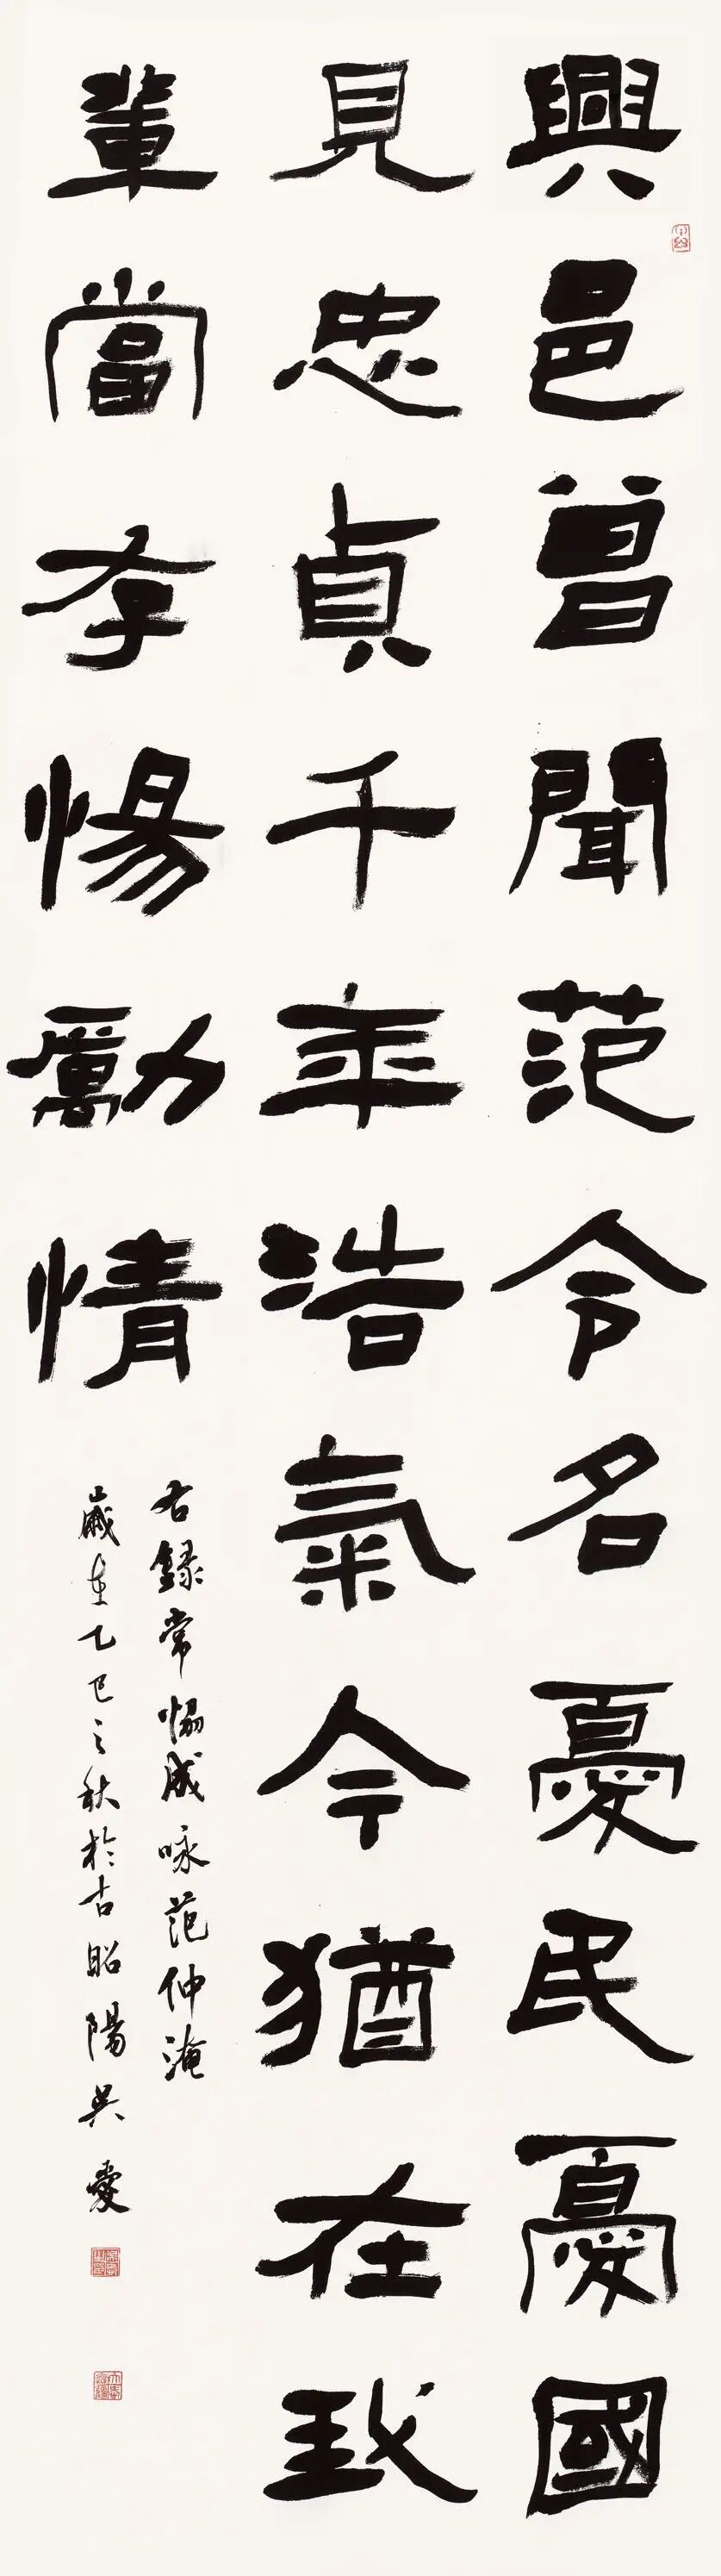 興邑曾聞范令名憂民憂國
見忠貞千年浩氣今猶在我
輩當存惕勵情
右錄常恊成咏范仲淹
歲在乙巳之秋於古昭陽吳